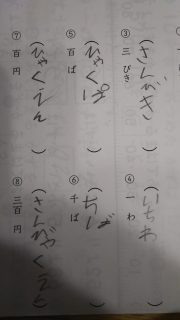 ③ 三びき (さんびき)
④ 一わ (いちわ)
⑤ 百ぱ (ひゃくぱ)
⑥ 千ば ( )
⑦ 百円 (ひゃくえん)
⑧ 三百円 (さんびゃくえん)